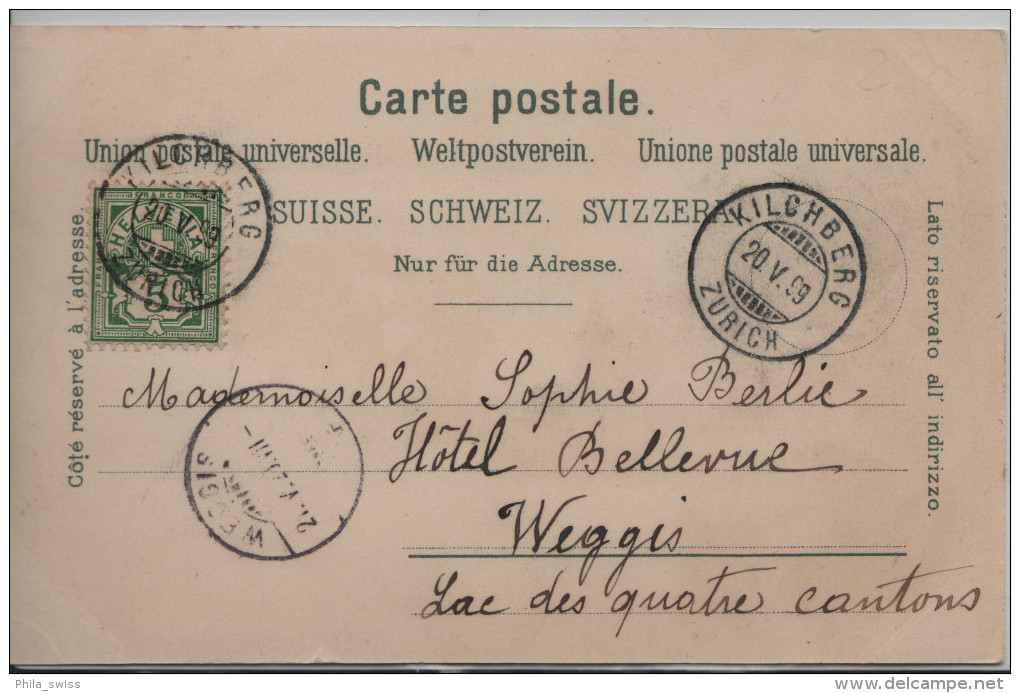 Carte postale.
Union postale universelle. Weltpostverein. Unione postale universale.
SUISSE. SCHWEIZ. SVIZZERA.
Nur für die Adresse.
Côté réservé à l'adresse.
Lato riservato all' indirizzo.
KILCHBERG
20.V.99
ZÜRICH
FRANCO
HELVETIA
5
KILCHBERG
20.V.99
ZÜRICH
Mademoiselle Sophie Berlie
Hôtel Bellevue
Weggis
Lac des quatre cantons
WEGGIS
21.V.
Phila_swiss
delcampe.net